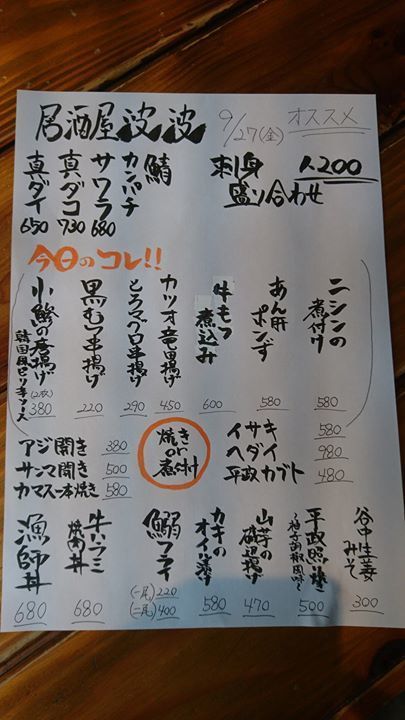 居酒屋 波波 9/27(金) オススメ
刺身盛り合わせ 1,200
鯖
カンパチ
サワラ 680
真ダコ 730
真ダイ 650
今日のコレ!!
ニシンの煮付け 580
あん肝ポンず 580
牛もつ煮込み 600
カツオ竜田揚げ 450
とろマグロ串揚げ 290
黒むつ串揚げ 220
小鯵の唐揚げ 韓国風ピリ辛ソース (2枚) 380
焼き or 煮付
イサキ 580
ヘダイ 980
平政カブト 480
アジ開き 380
サンマ開き 500
カマス一本焼き 580
谷中生姜 みそ 300
平政照り焼き 〜柚子胡椒風味〜 500
山芋の磯辺揚げ 470
カキのオイル漬け 580
鰯フライ (一尾)220 (二尾)400
牛ハラミ焼肉丼 680
漁師丼 680